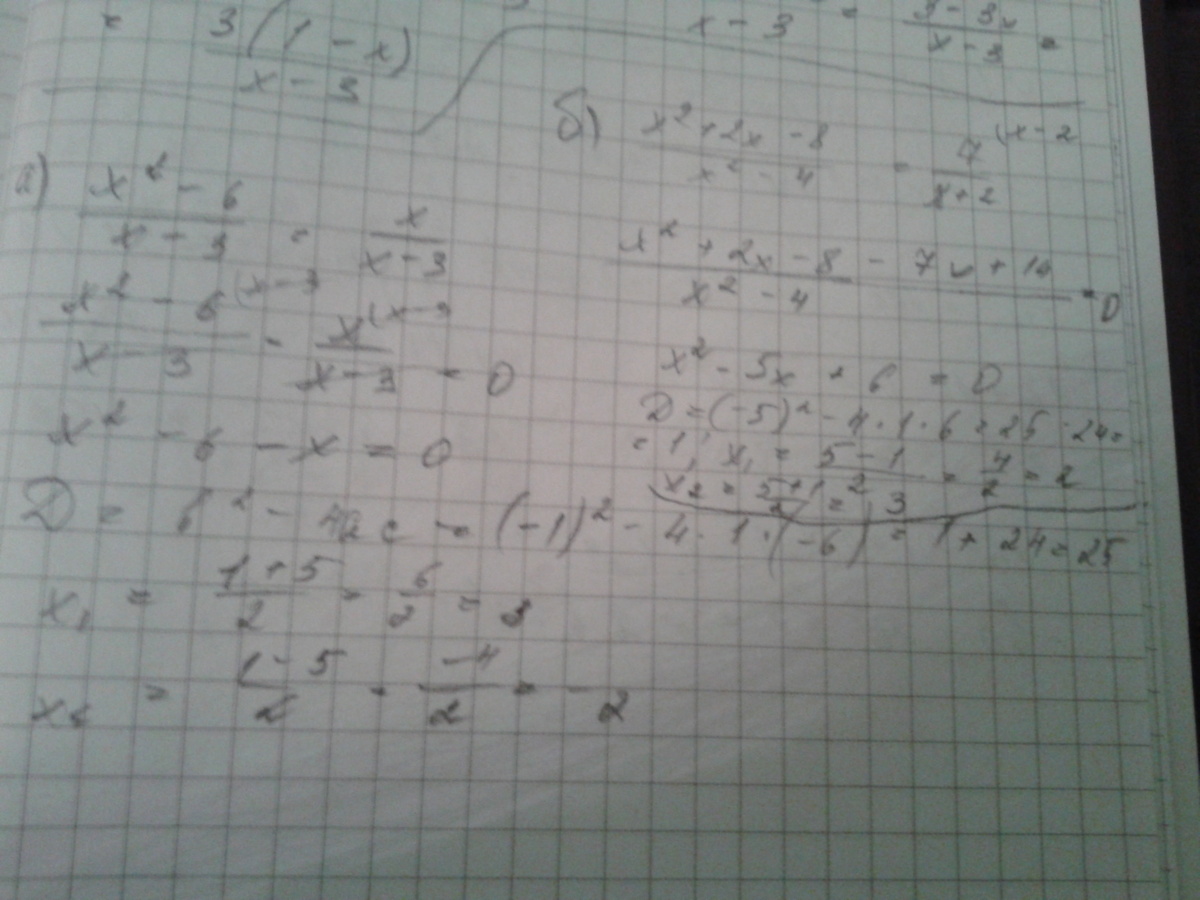 = 3(1 - x) / x - 3
x - 3 = 3 - 3x / x - 3 =
а) x² - 6 / x - 3 = x / x - 3
x² - 6 (x - 3 / x - 3 - x (x - 3 / x - 3 = 0
x² - 6 - x = 0
D = b² - 4ac = (-1)² - 4·1·(-6) = 1 + 24 = 25
x₁ = 1 + 5 / 2 = 6 / 2 = 3
x₂ = 1 - 5 / 2 = -4 / 2 = -2
б) x² + 2x - 8 / x² - 4 = 7 (x - 2 / x + 2
x² + 2x - 8 - 7x + 14 / x² - 4 = 0
x² - 5x + 6 = 0
D = (-5)² - 4·1·6 = 25 - 24 =
= 1, x₁ = 5 - 1 / 2 = 4 / 2 = 2
x₂ = 5 + 1 / 2 = 3